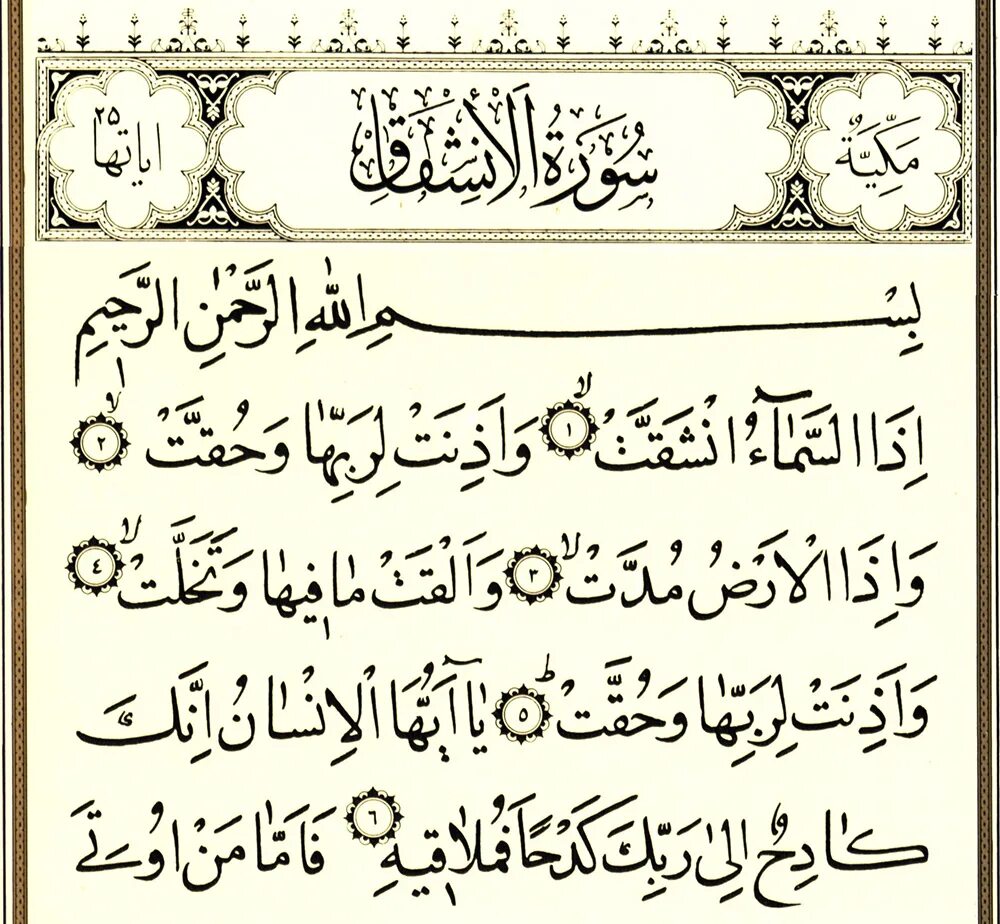 مَكِّيَّةٌ
سُورَةُ الْاِنْشِقَاقِ
اٰيَاتُهَا ٢٥
بِسْمِ اللّٰهِ الرَّحْمٰنِ الرَّحٖيمِ
اِذَا السَّمَٓاءُ انْشَقَّتْۙ ١ وَاَذِنَتْ لِرَبِّهَا وَحُقَّتْۙ ٢
وَاِذَا الْاَرْضُ مُدَّتْۙ ٣ وَاَلْقَتْ مَا فٖيهَا وَتَخَلَّتْۙ ٤
وَاَذِنَتْ لِرَبِّهَا وَحُقَّتْؕ ٥ يَٓا اَيُّهَا الْاِنْسَانُ اِنَّكَ
كَادِحٌ اِلٰى رَبِّكَ كَدْحًا فَمُلَاقٖيهِ ٦ فَاَمَّا مَنْ اُو۫تِيَ